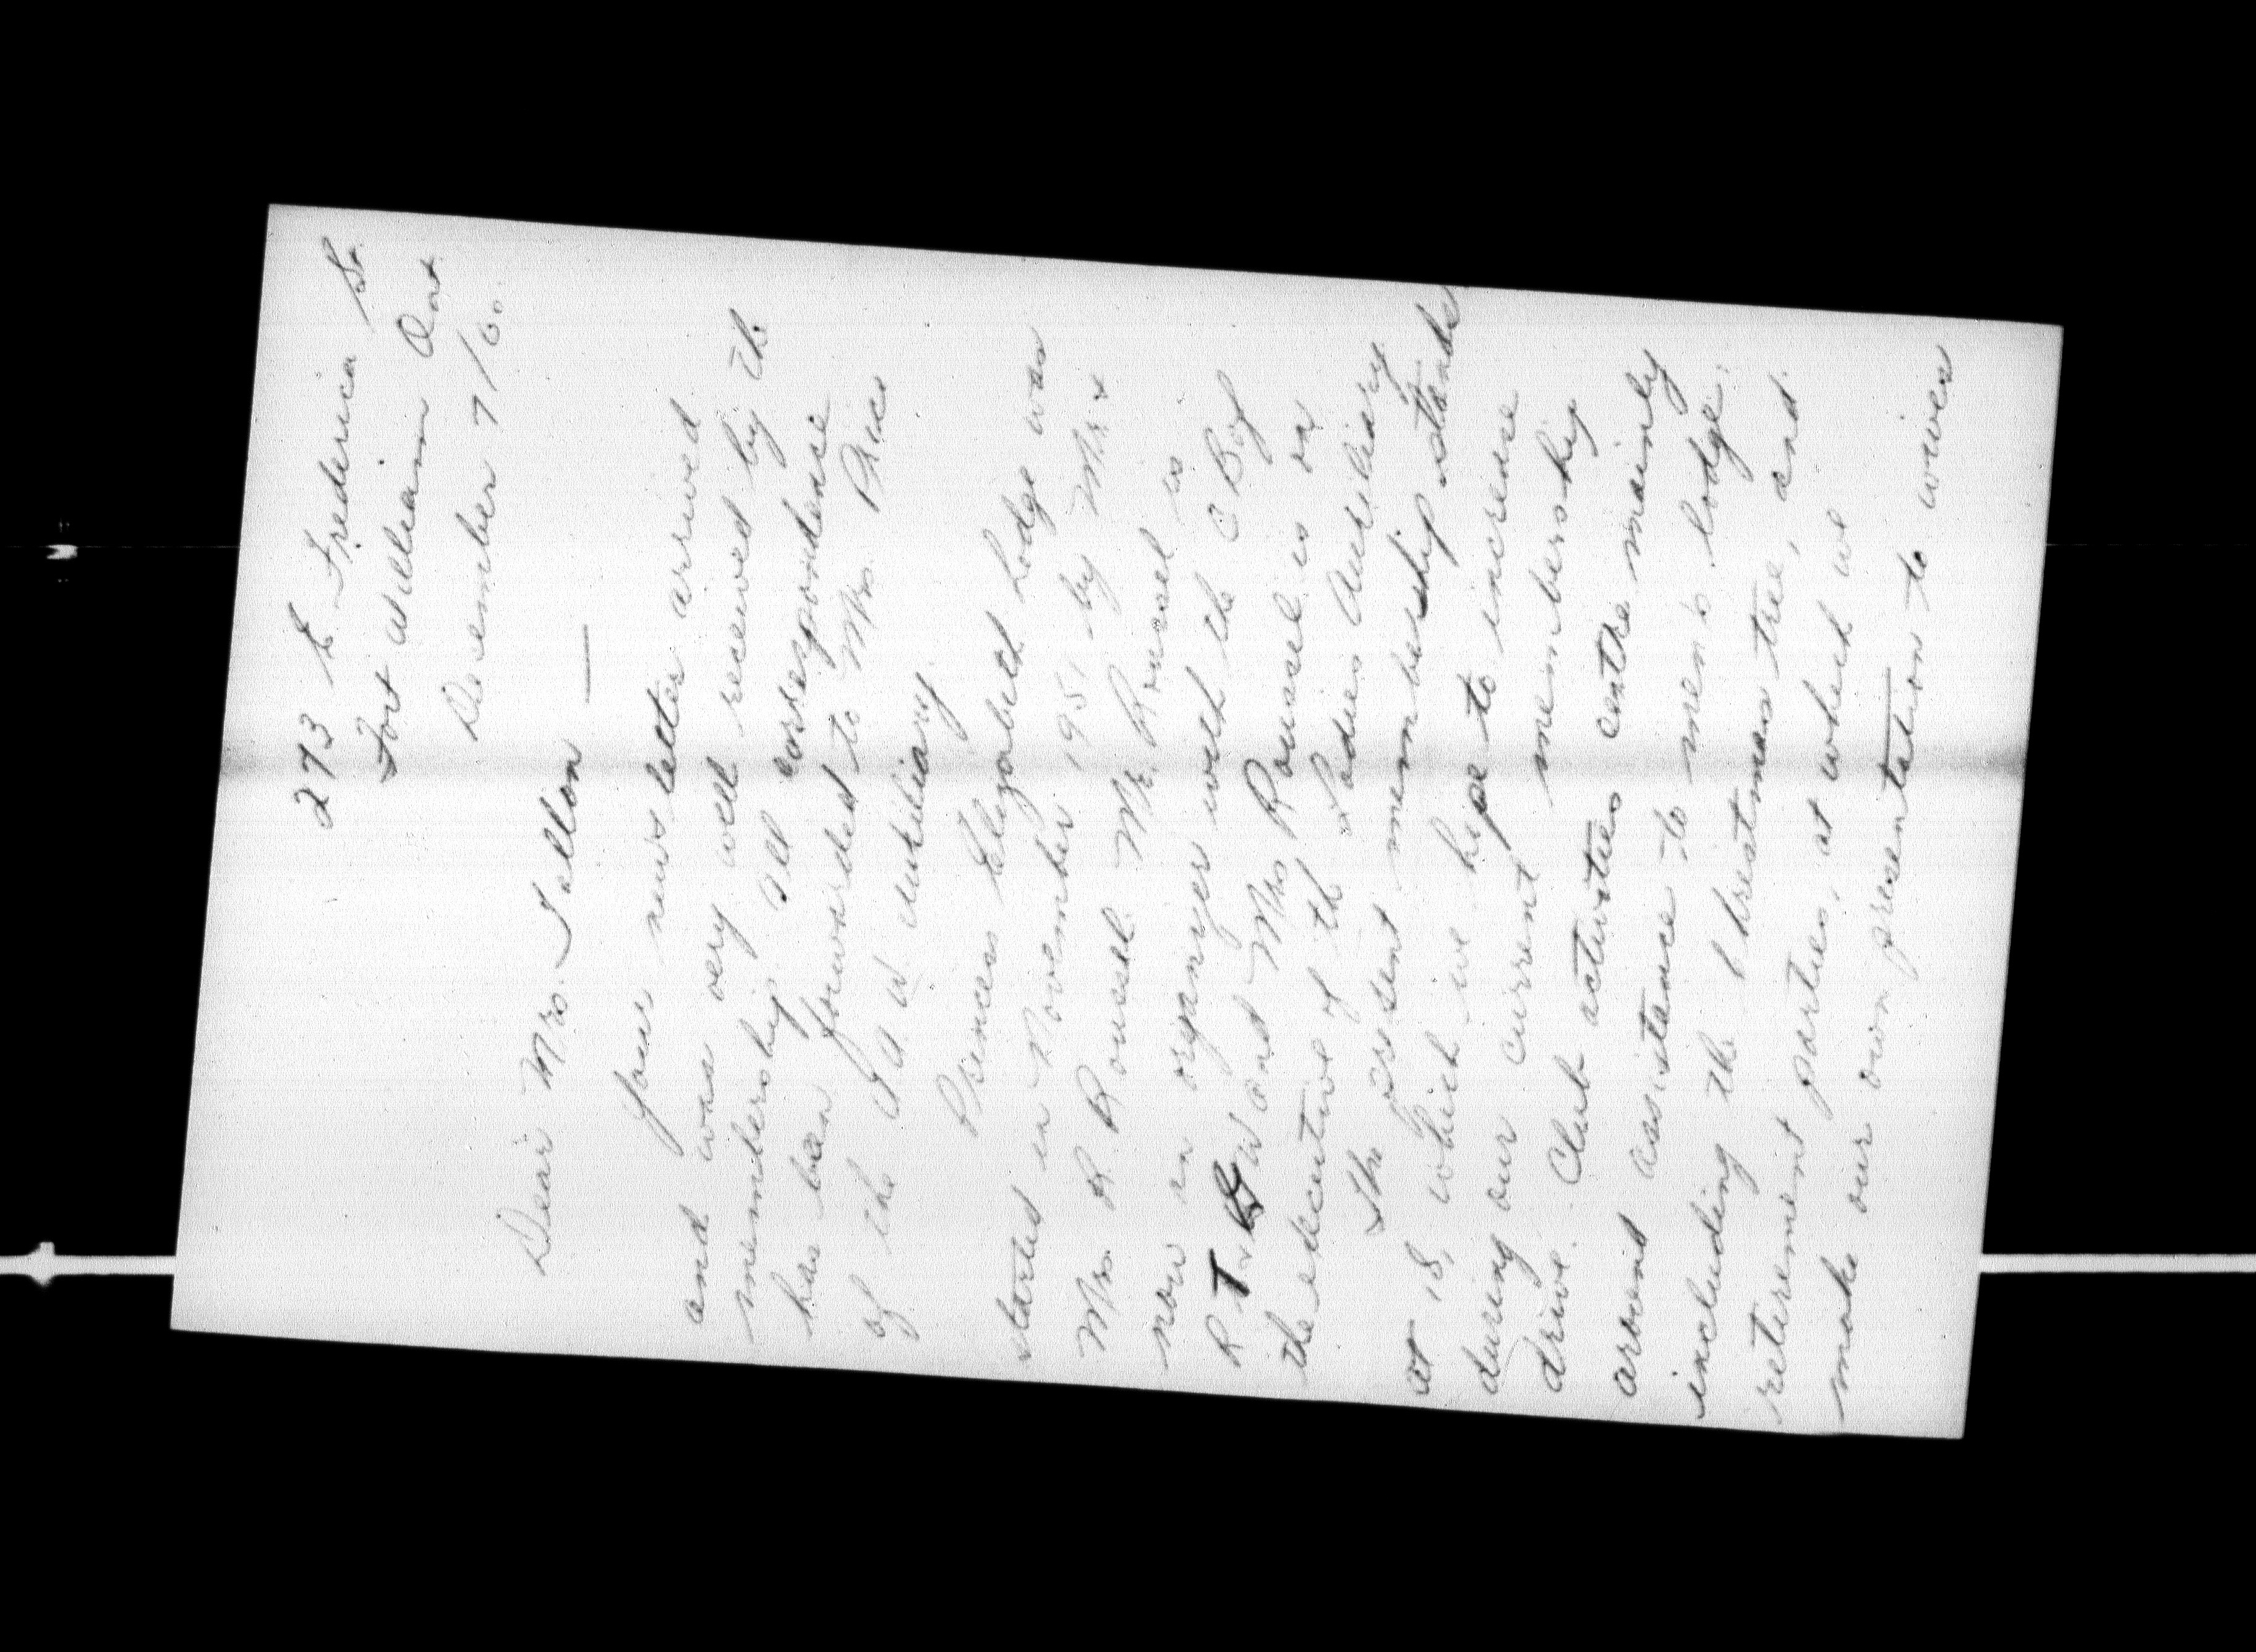 273 E Frederica St.
Fort William Ont
December 7/60.
Dear Mrs. Tallon —
Your news letter arrived
and was very well received by the
membership. All correspondence
has been forwarded to Mrs. Price
of the I A W auxiliary
Princess Elizabeth Lodge was
started in November 1951 by Mr &
Mrs R Rousel. Mr. Rousel is
now an organizer with the C B of
R T & G W and Mrs Rousel is on
the executive of the Ladies Auxiliary
The present membership stands
at 18, which we hope to increase
during our current membership
drive. Club activities centre mainly
around assistance to men's lodge,
including the Christmas tree, and
retirement parties, at which we
make our own presentation to wives